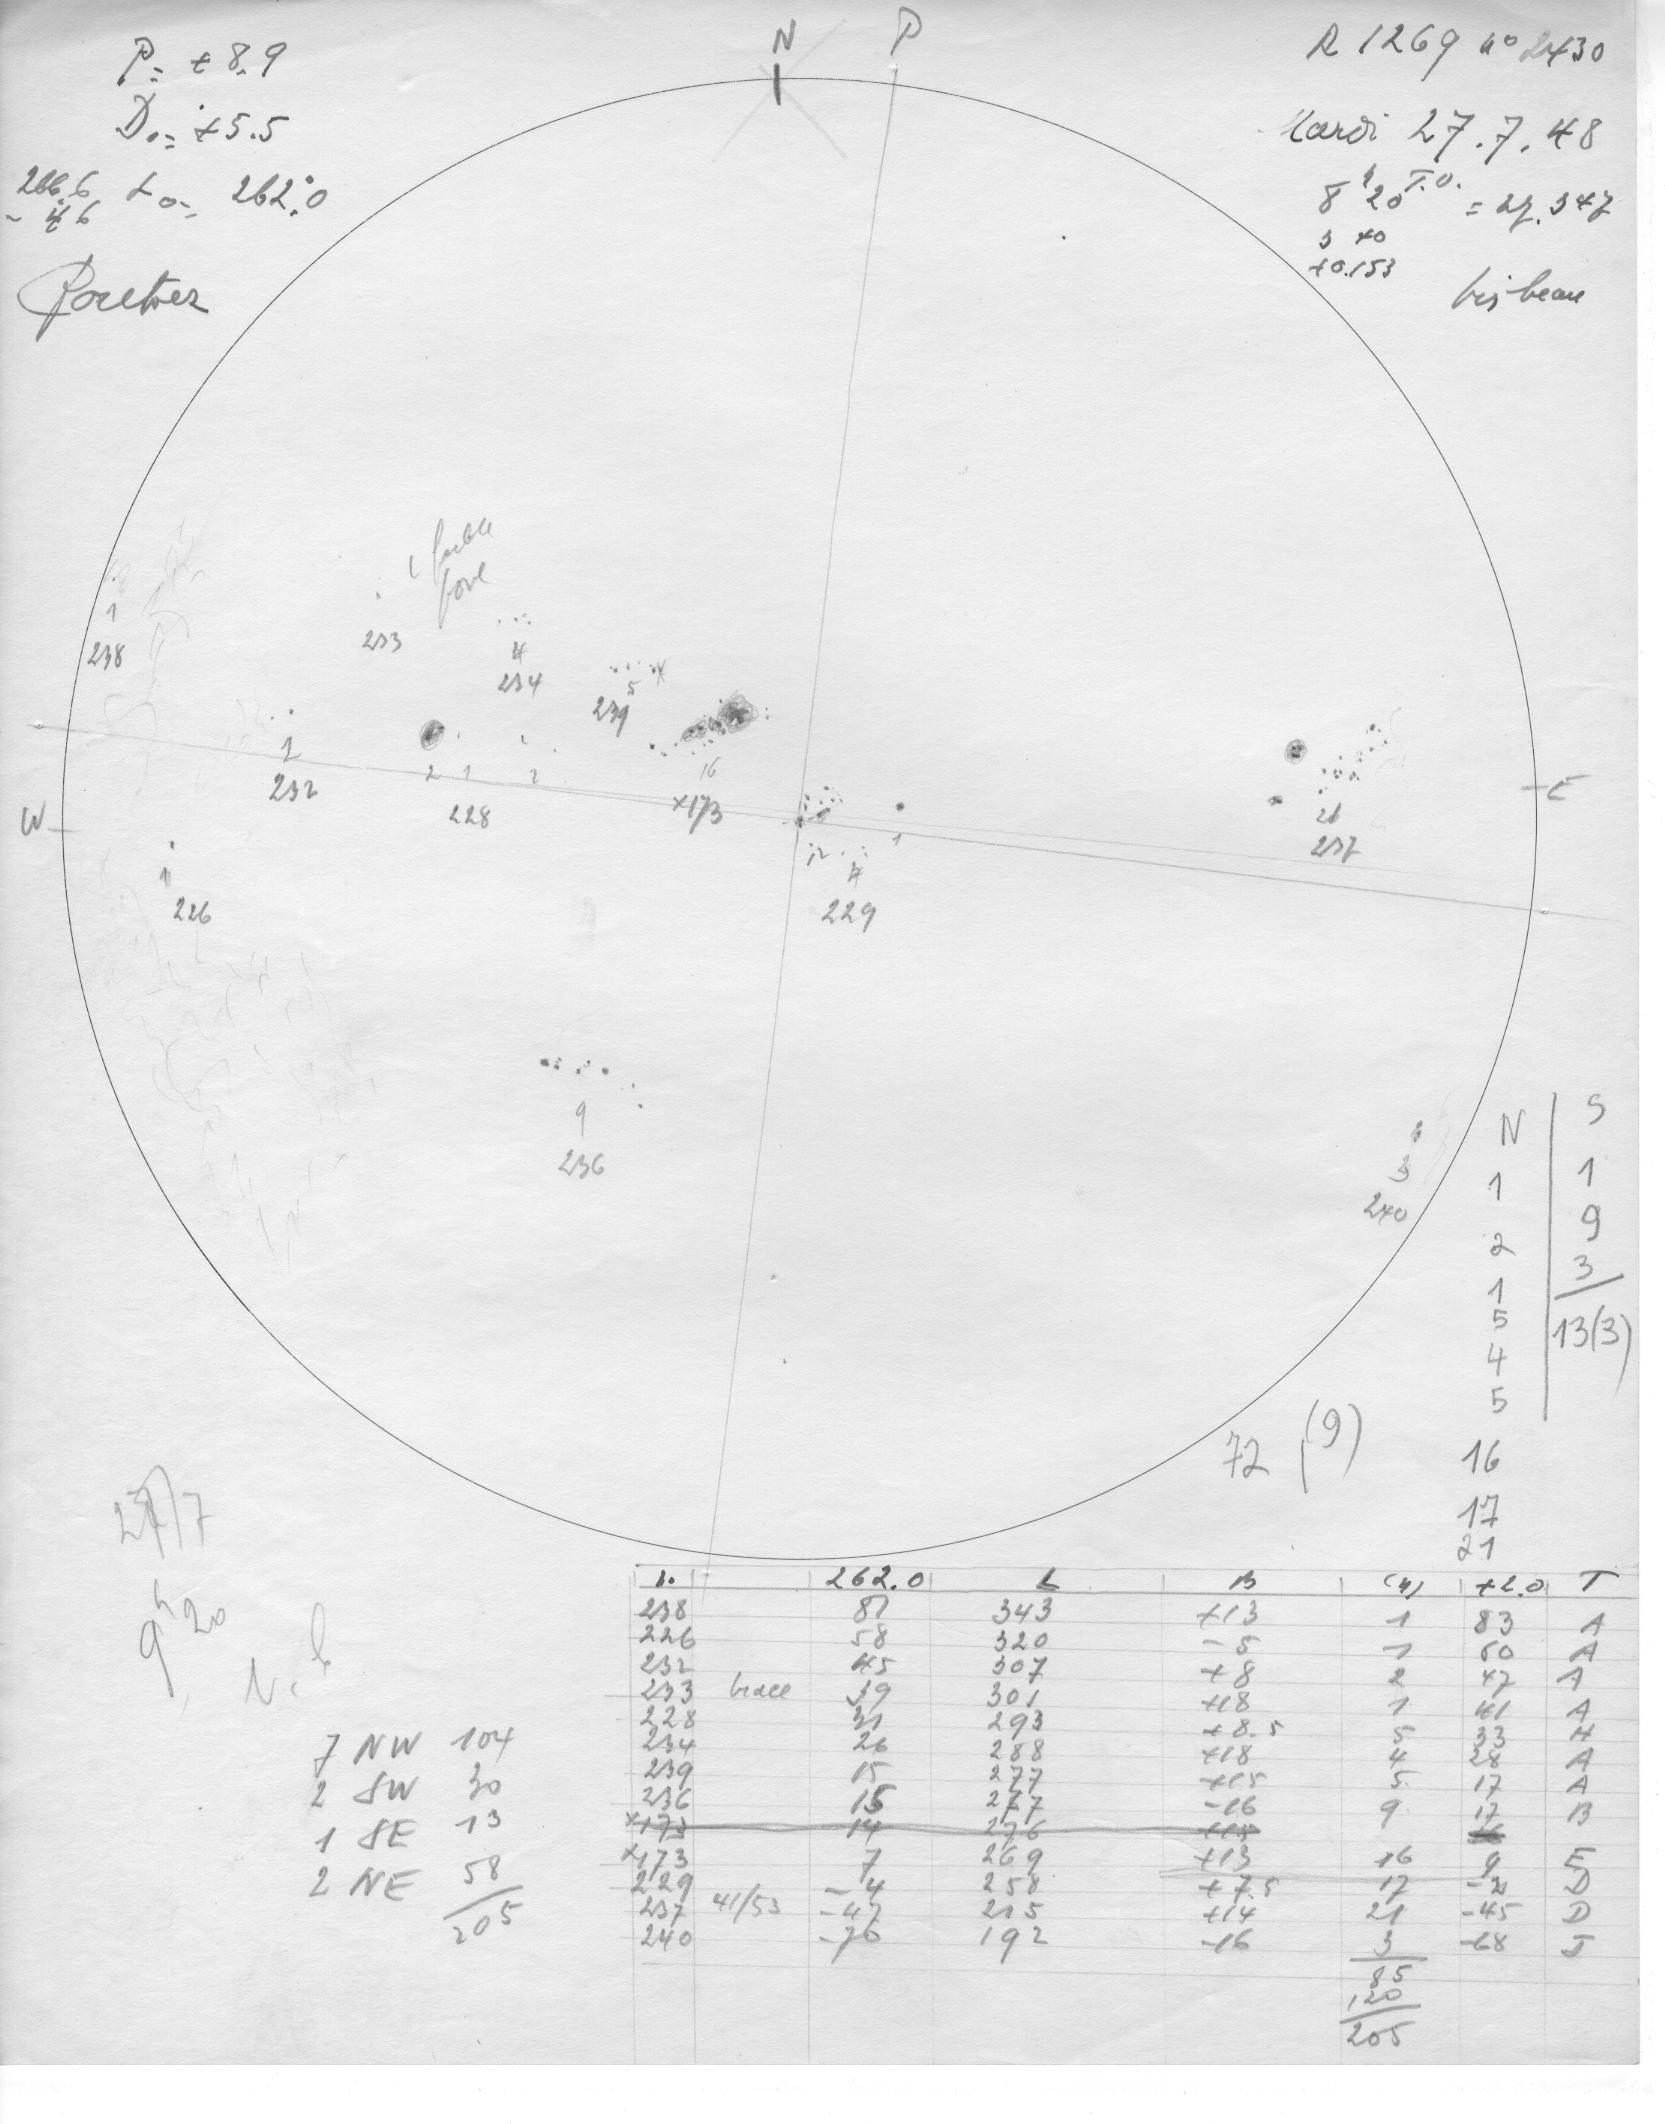 N P
P = +8.9
D₀ = +5.5
266.6 L₀ = 262.0
- 4.6
R 1269 n° 2430
Mardi 27.7.48
8 h 20 T.U. = 27.347
3 40
+0.153
1 faible
pore
1
238
233
4
234
5
239
1
232
2 1 2
228
16
×173
W
E
1
226
12
4
1
229
21
237
9
236
3
240
N S
1 1
2 9
1 3
5 13(3)
4
5
16
17
21
72 (9)
27/7
9 h 20
7 NW 104
2 SW 30
1 SE 13
2 NE 58
205
262.0 L B +2.0 T
238 81 343 +13 1 83 A
226 58 320 -5 1 60 A
232 45 307 +8 2 47 A
233 trace 39 301 +18 1 41 A
228 31 293 +8.5 5 33 H
234 26 288 +18 4 28 A
239 15 277 +15 5 17 A
236 15 277 -16 9 17 B
×173 14 276 +15
×173 7 269 +13 16 9 E
229 -4 258 +7.5 17 -2 D
237 41/53 -47 215 +14 21 -45 D
240 -70 192 -16 3 -68 J
85
120
205